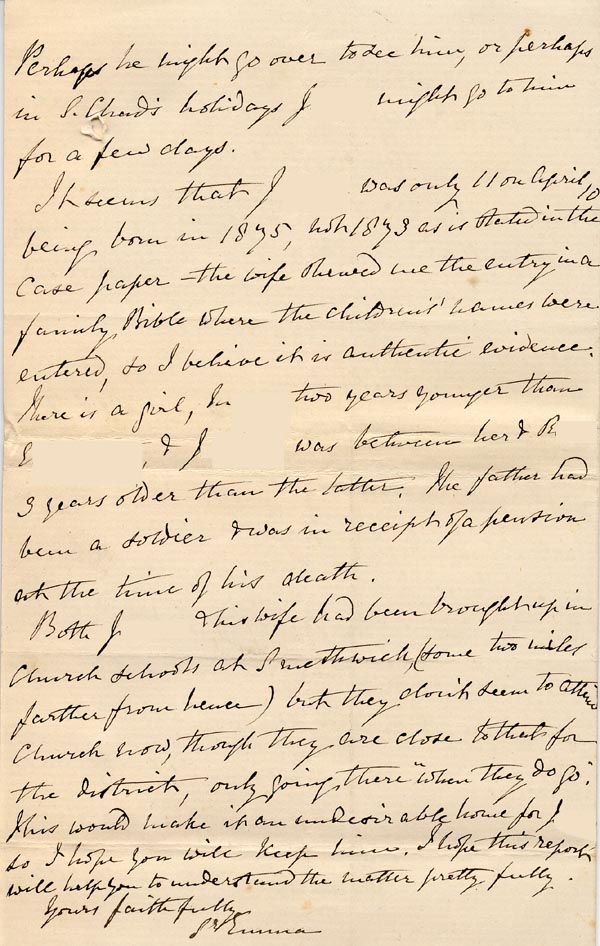 Perhaps he might go over to see him, or perhaps
in S. Chad's holidays J might go to him
for a few days.
It seems that J was only 11 on April 10
being born in 1875, not 1873 as is stated in the
Case paper – the wife shewed me the entry in a
family Bible where the children's names were
entered, so I believe it is authentic evidence.
There is a girl, M two years younger than
E , & J was between her & B
3 years older than the latter. The father had
been a soldier & was in receipt of a pension
at the time of his death.
Both J & his wife had been brought up in
Church schools at Smethwick, (some two miles
farther from hence) but they don't seem to attend
Church now, though they are close to that for
the district, only going there "when they do go".
This would make it an undesirable home for J
so I hope you will keep him. I hope this report
will help you to understand the matter pretty fully.
Yours faithfully
Sr Emma